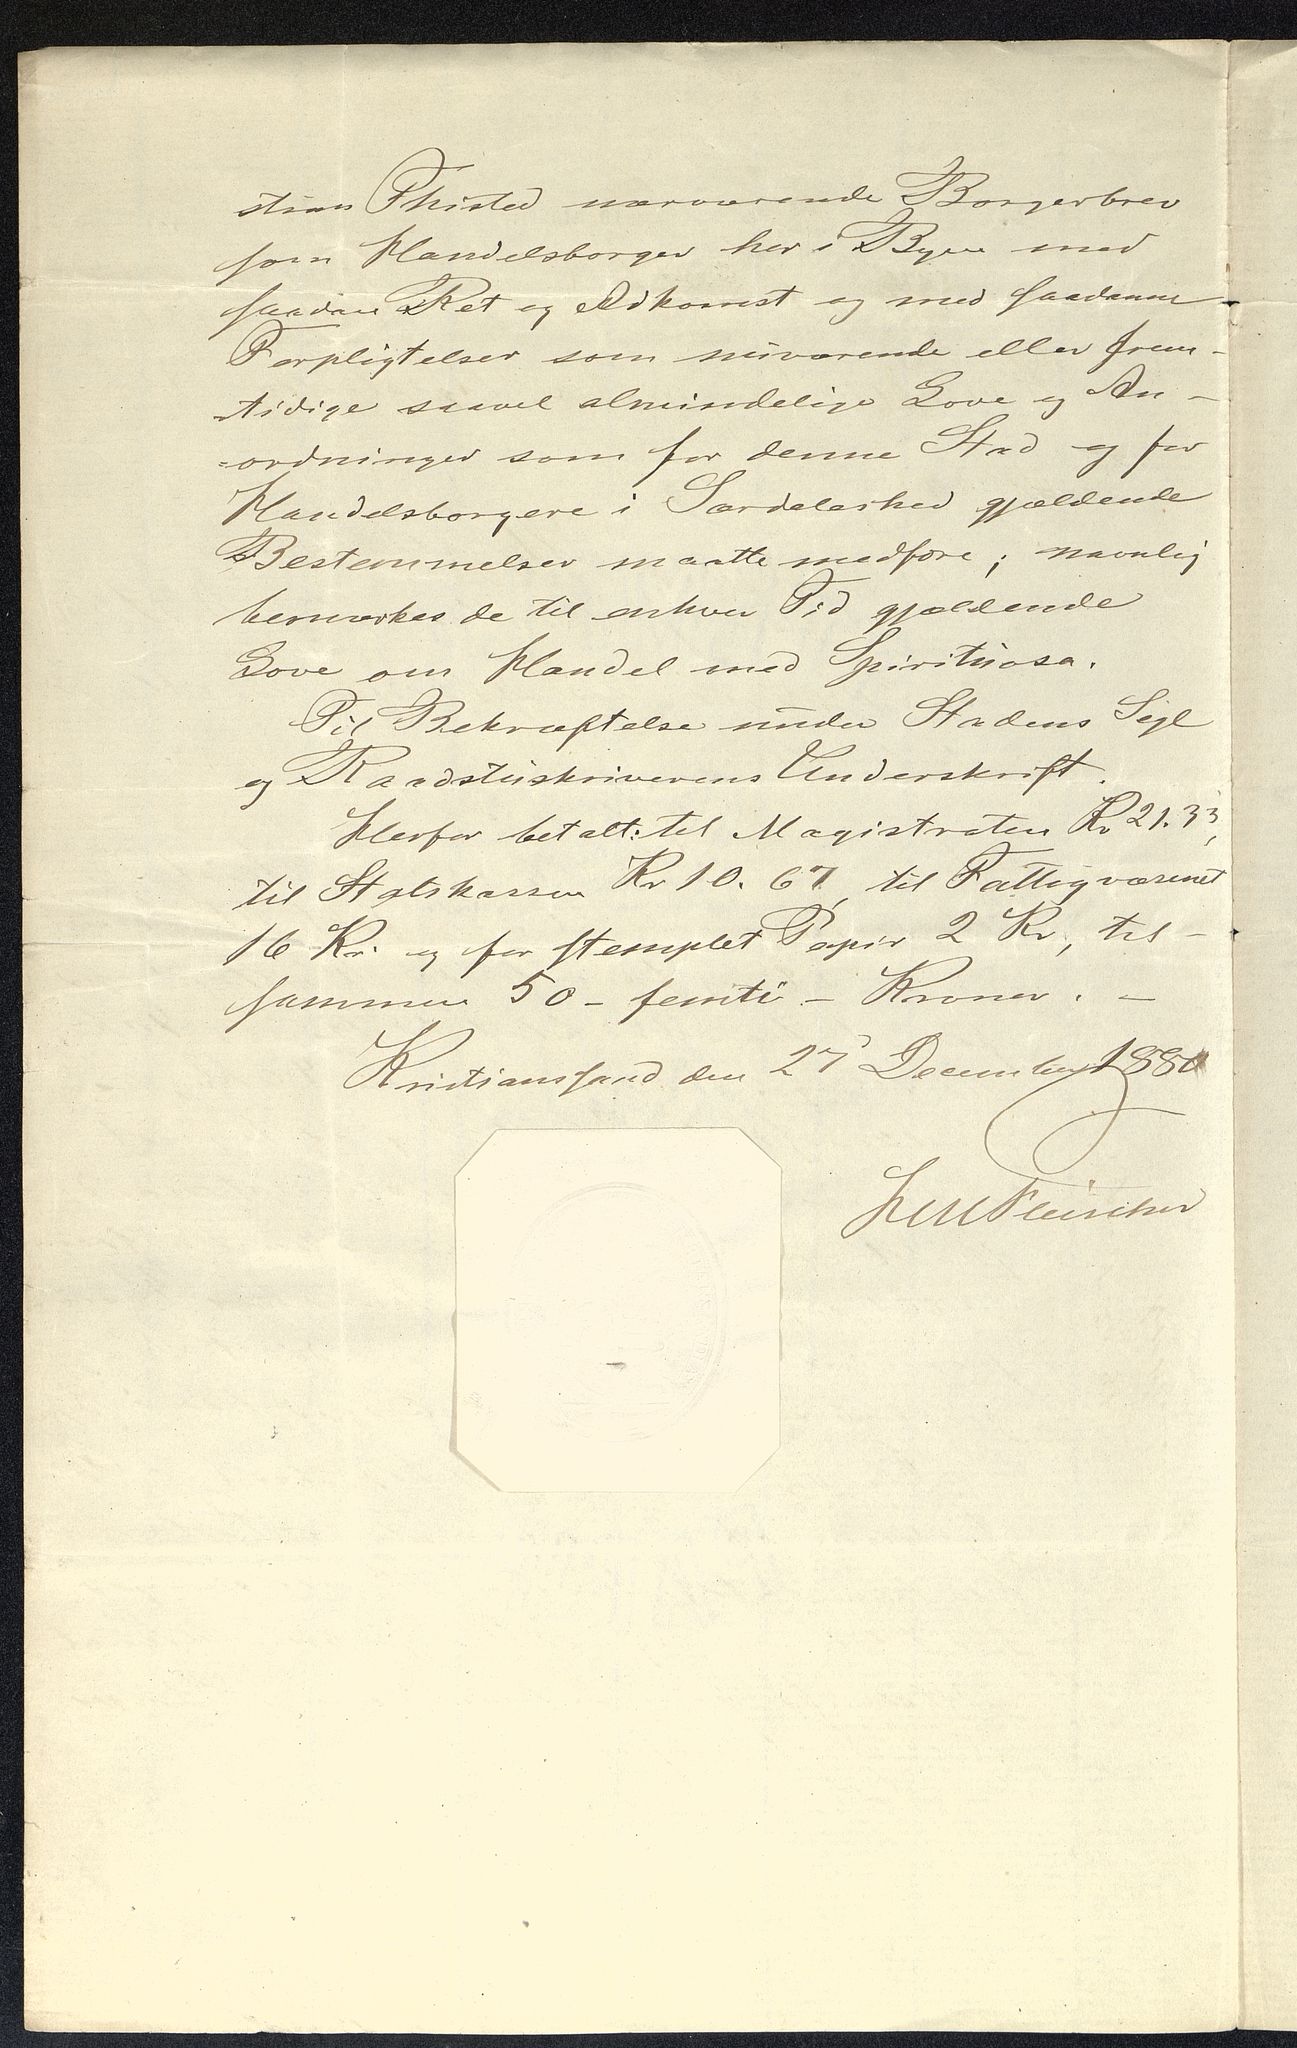 stian Thisted nærværende Borgerbrev
som Handelsborger her i Byen med
saadan Ret og Adkomst og med saadanne
Forpligtelser som nuværende eller frem-
-tidige saavel almindelige Love og An-
-ordninger som for denne Stad og for
Handelsborgere i Særdeleshed gjældende
Bestemmelser maatte medføre; navnlig
bemærkes de til enhver Tid gjældende
Love om Handel med Spirituosa.
Til Bekræftelse under Stadens Segl
og Raadstuskriverens Underskrift.
Herfor betalt: til Magistraten Kr 21.33,
til Statskassen Kr 10.67, til Fattigvæsenet
16 Kr. og for stemplet Papir 2 Kr, til-
sammen 50 - femti - Kroner. -
Kristianssand den 27 December 1880
Fleischer